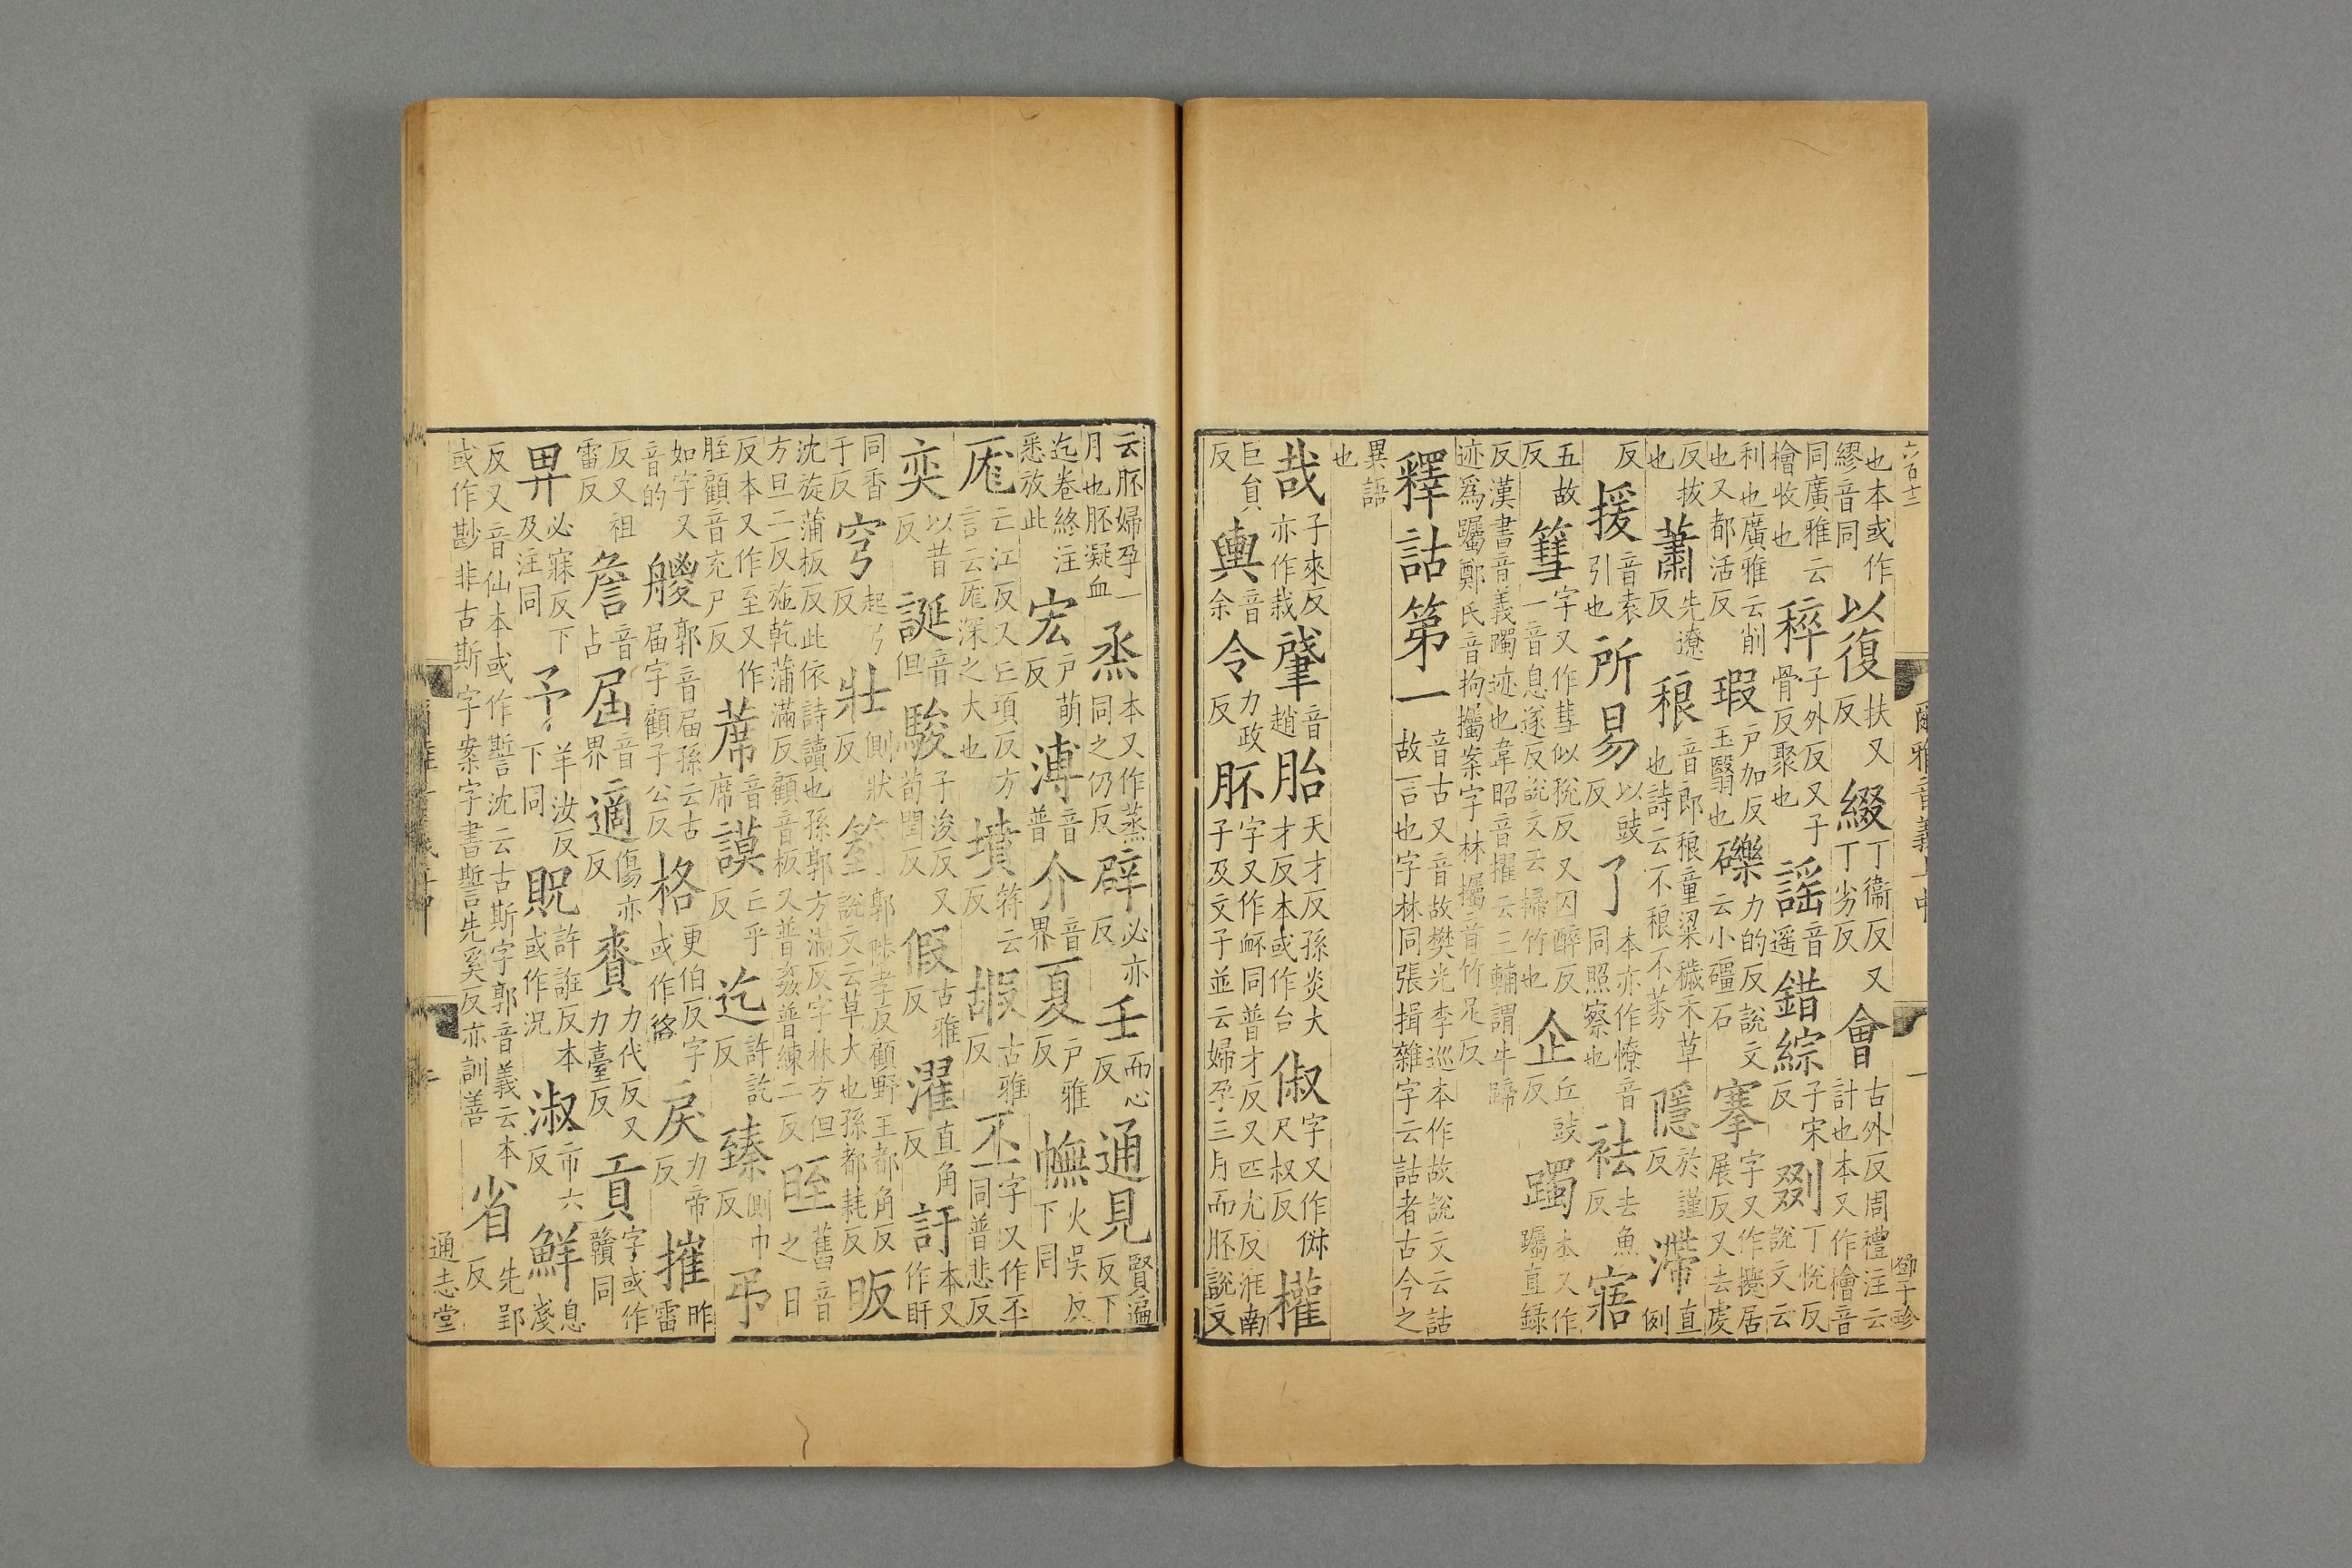 六百十二 爾雅音義上中 一 鄧子珍
也本或作繆音同以復扶又反綴丁衞反又丁劣反會古外反周禮注云計也本又作檜音
同廣雅云檜收也稡子外反又子骨反聚也謡音遥錯綜子宋反剟丁恱反說文云
利也廣雅云削也又都活反瑕戸加反玉翳也礫力的反說文云小礓石搴字又作攓居展反又去虔
反拔也蕭先遼反稂音郎稂童粱穢禾草也詩云不稂不莠隱於謹反滯直例
反援音袁引也所易以豉反了本亦作憭音同照察也袪去魚反寤
五故反篲字又作彗似稅反又囚醉反一音息遂反說文云掃竹也企丘豉反躅本又作躅直録
反漢書音義躅迹也韋昭音擢云三輔謂牛蹄迹爲躅鄭氏音拘攔案字林躅音竹足反
釋詁第一音古又音故樊光李巡本作故說文云詁故言也字林同張揖雜字云詁者古今之
異語也
哉子來反亦作栽肈音趙胎天才反孫炎大才反本或作台俶字又作㑐尺叔反權
巨員反輿音余令力政反胚字又作衃同普才反又匹尤反淮南子及文子並云婦孕三月而胚說文
云胚婦孕一月也胚凝血烝本又作蒸同之仍反辟必亦反壬而心反通見賢遍反下
迄卷終注悉放此宏戸萌反溥音普介音界夏戸雅反幠火吳反下同
厖亡江反又亡項反方言云厖深之大也墳符云反嘏古雅反丕字又作㔻同普悲反
奕以昔反誕音但駿子浚反又荀閏反假古雅反濯直角反訏本又作盱
同香于反穹起弓反壯側狀反箌郭陟孝反顧野王都角反說文云草大也孫都耗反昄
沈旋蒲板反此依詩讀也孫郭方滿反字林方但方旦二反施乾蒲滿反顧音板又普姦普練二反晊舊音之日
反本又作至又作胵顧音充尸反蓆音席謨亡乎反迄許訖反臻側巾反弔
如字又音的艐郭音届孫云古届字顧子公反格更伯反字或作𢓜戾力帝反摧昨雷
反又祖雷反詹音占届音界適傷亦反賚力代反又力臺反貢字或作贛同
畀必寐反下及注同予羊汝反下同貺許誑反本或作況淑市六反鮮息淺
反又音仙本或作誓沈云古斯字郭音義云本或作尠非古斯字案字書誓先奚反亦訓善省先郢反
通志堂